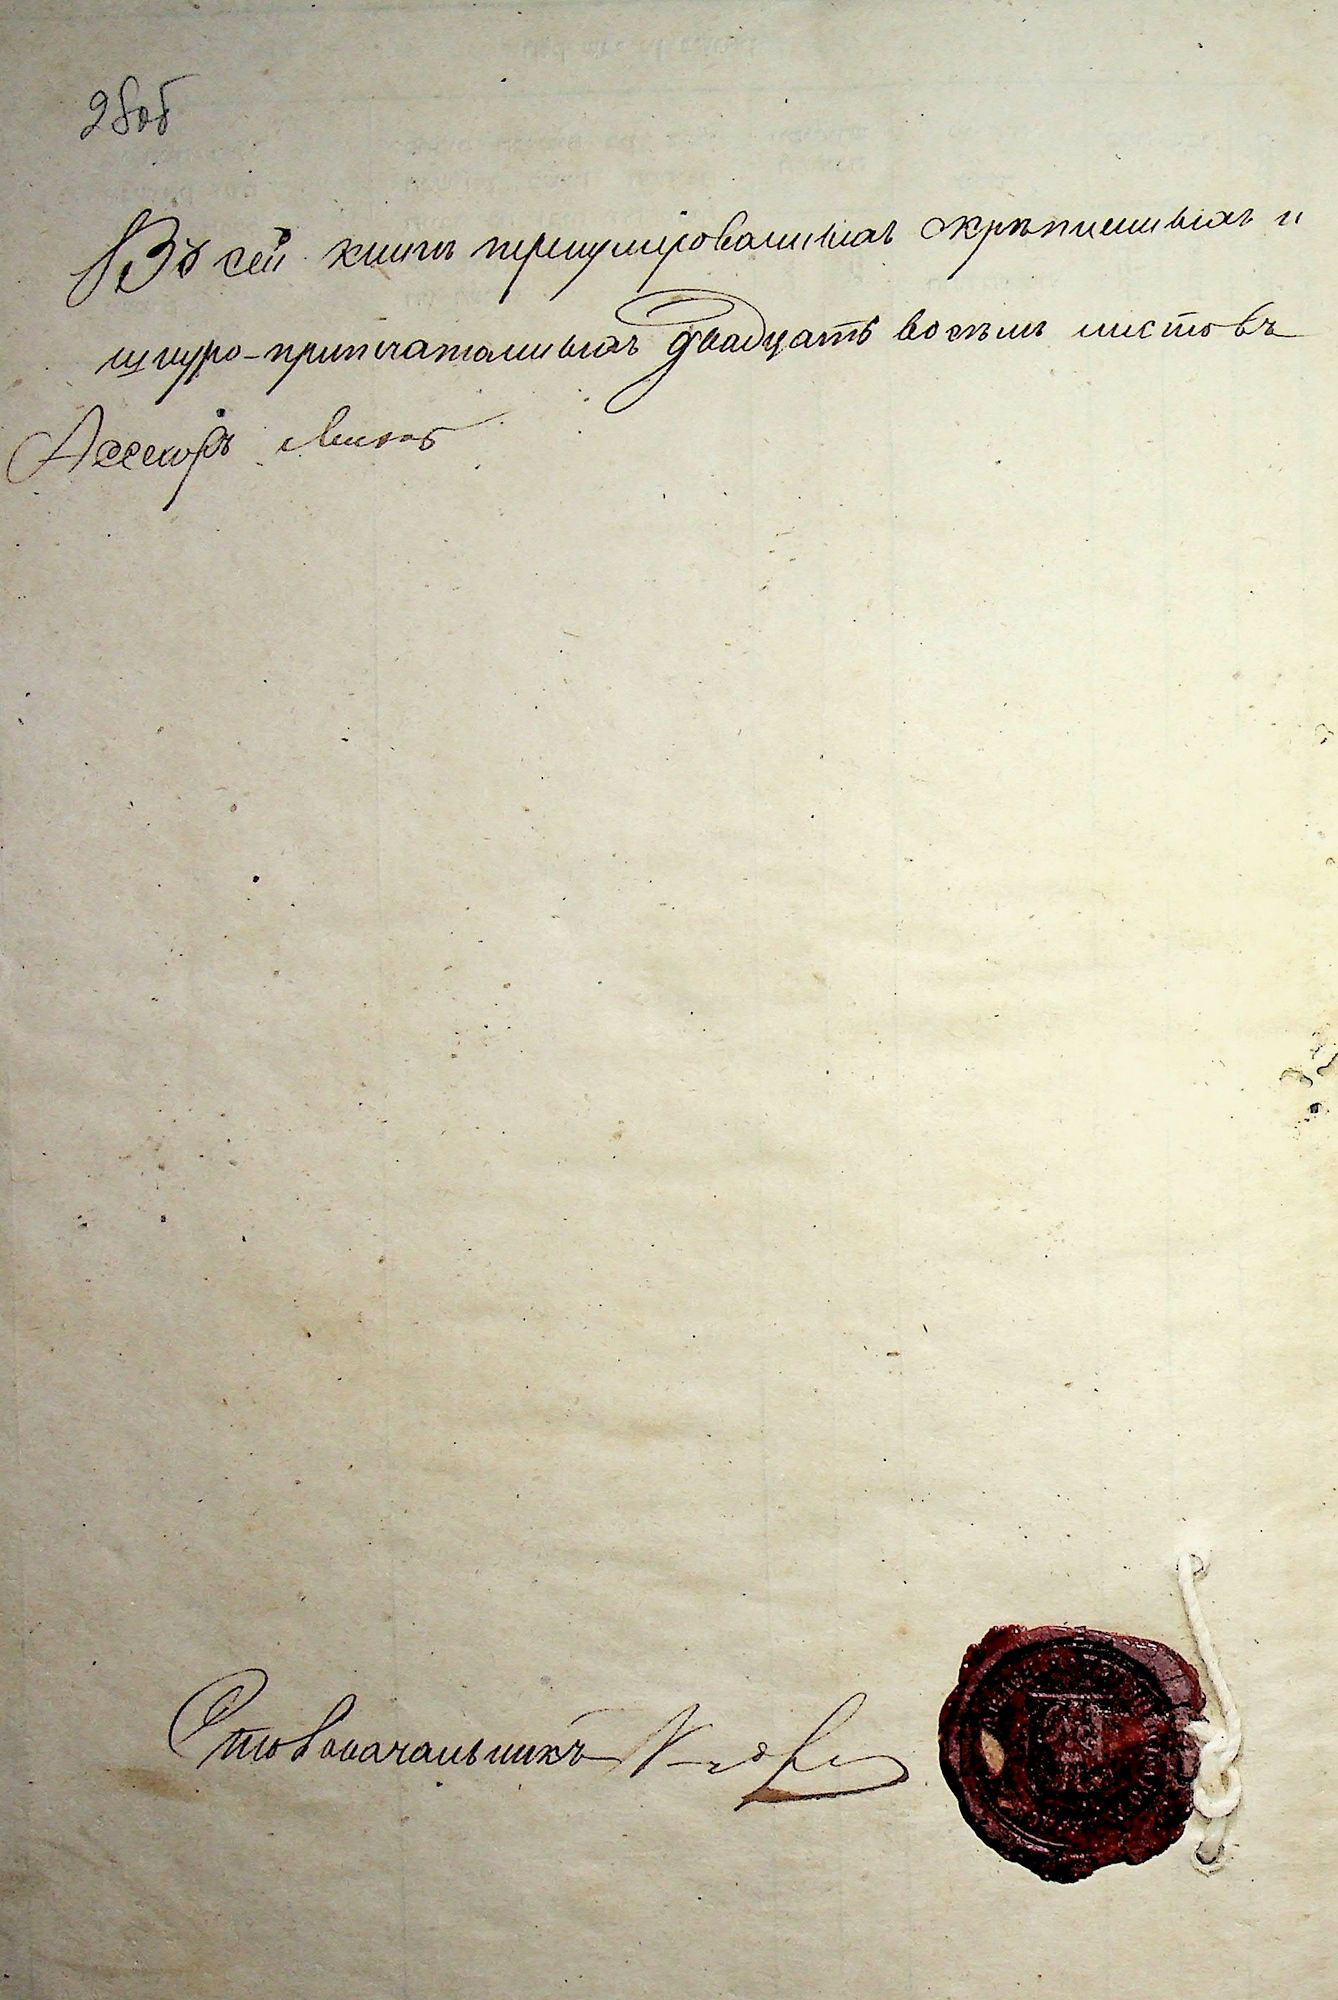 28об
Въ сей книгѣ перенумерованныхъ скрѣпленныхъ и
шнуро-припечатанныхъ двадцать восемь листовъ
Ассесоръ
Столоначальникъ